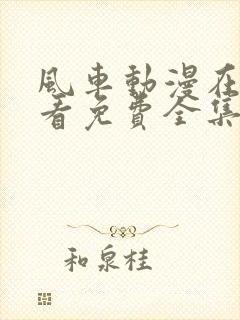 風車動漫在
看免費全集
和泉桂